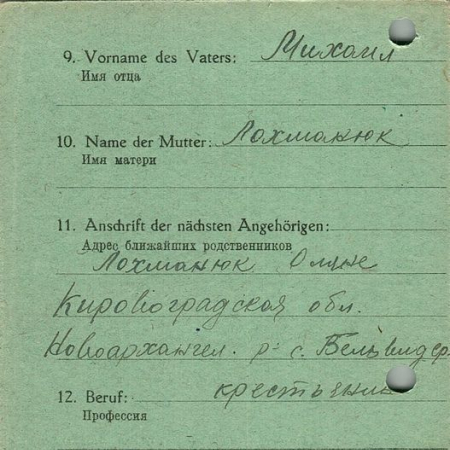 9. Vorname des Vaters: Михаил
Имя отца
10. Name der Mutter: Лохманюк
Имя матери
11. Anschrift der nächsten Angehörigen:
Адрес ближайших родственников
Лохманюк
Кировоградская обл.
Новоархангел. р- с. Бельвидер
12. Beruf: крестьянин
Профессия